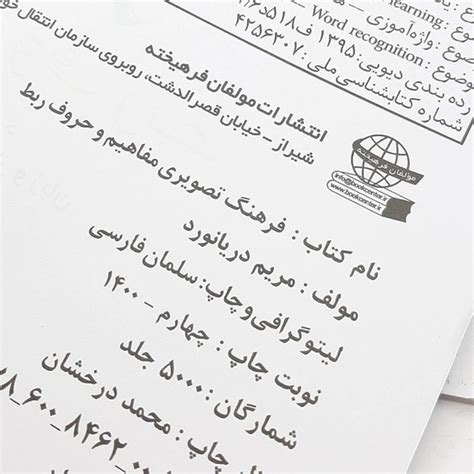 learning
موضوع : واژه‌آموزی --
موضوع : Word recognition --
رده بندی دیویی: ۱۳۹۵
شماره کتابشناسی ملی : ۴۲۵۶۳۰۷
انتشارات مولفان فرهیخته
شیراز – خیابان قصرالدشت، روبروی سازمان انتقال
مؤلفان فرهیخته
info@bookcenter.ir
www.bookcenter.ir
نام کتاب : فرهنگ تصویری مفاهیم و حروف ربط
مولف : مریم دریانورد
لیتوگرافی و چاپ: سلمان فارسی
نوبت چاپ : چهارم – ۱۴۰۰
شمارگان : ۵۰۰۰ جلد
چاپ : محمد درخشان
۶۰۰_۸۴۶۲